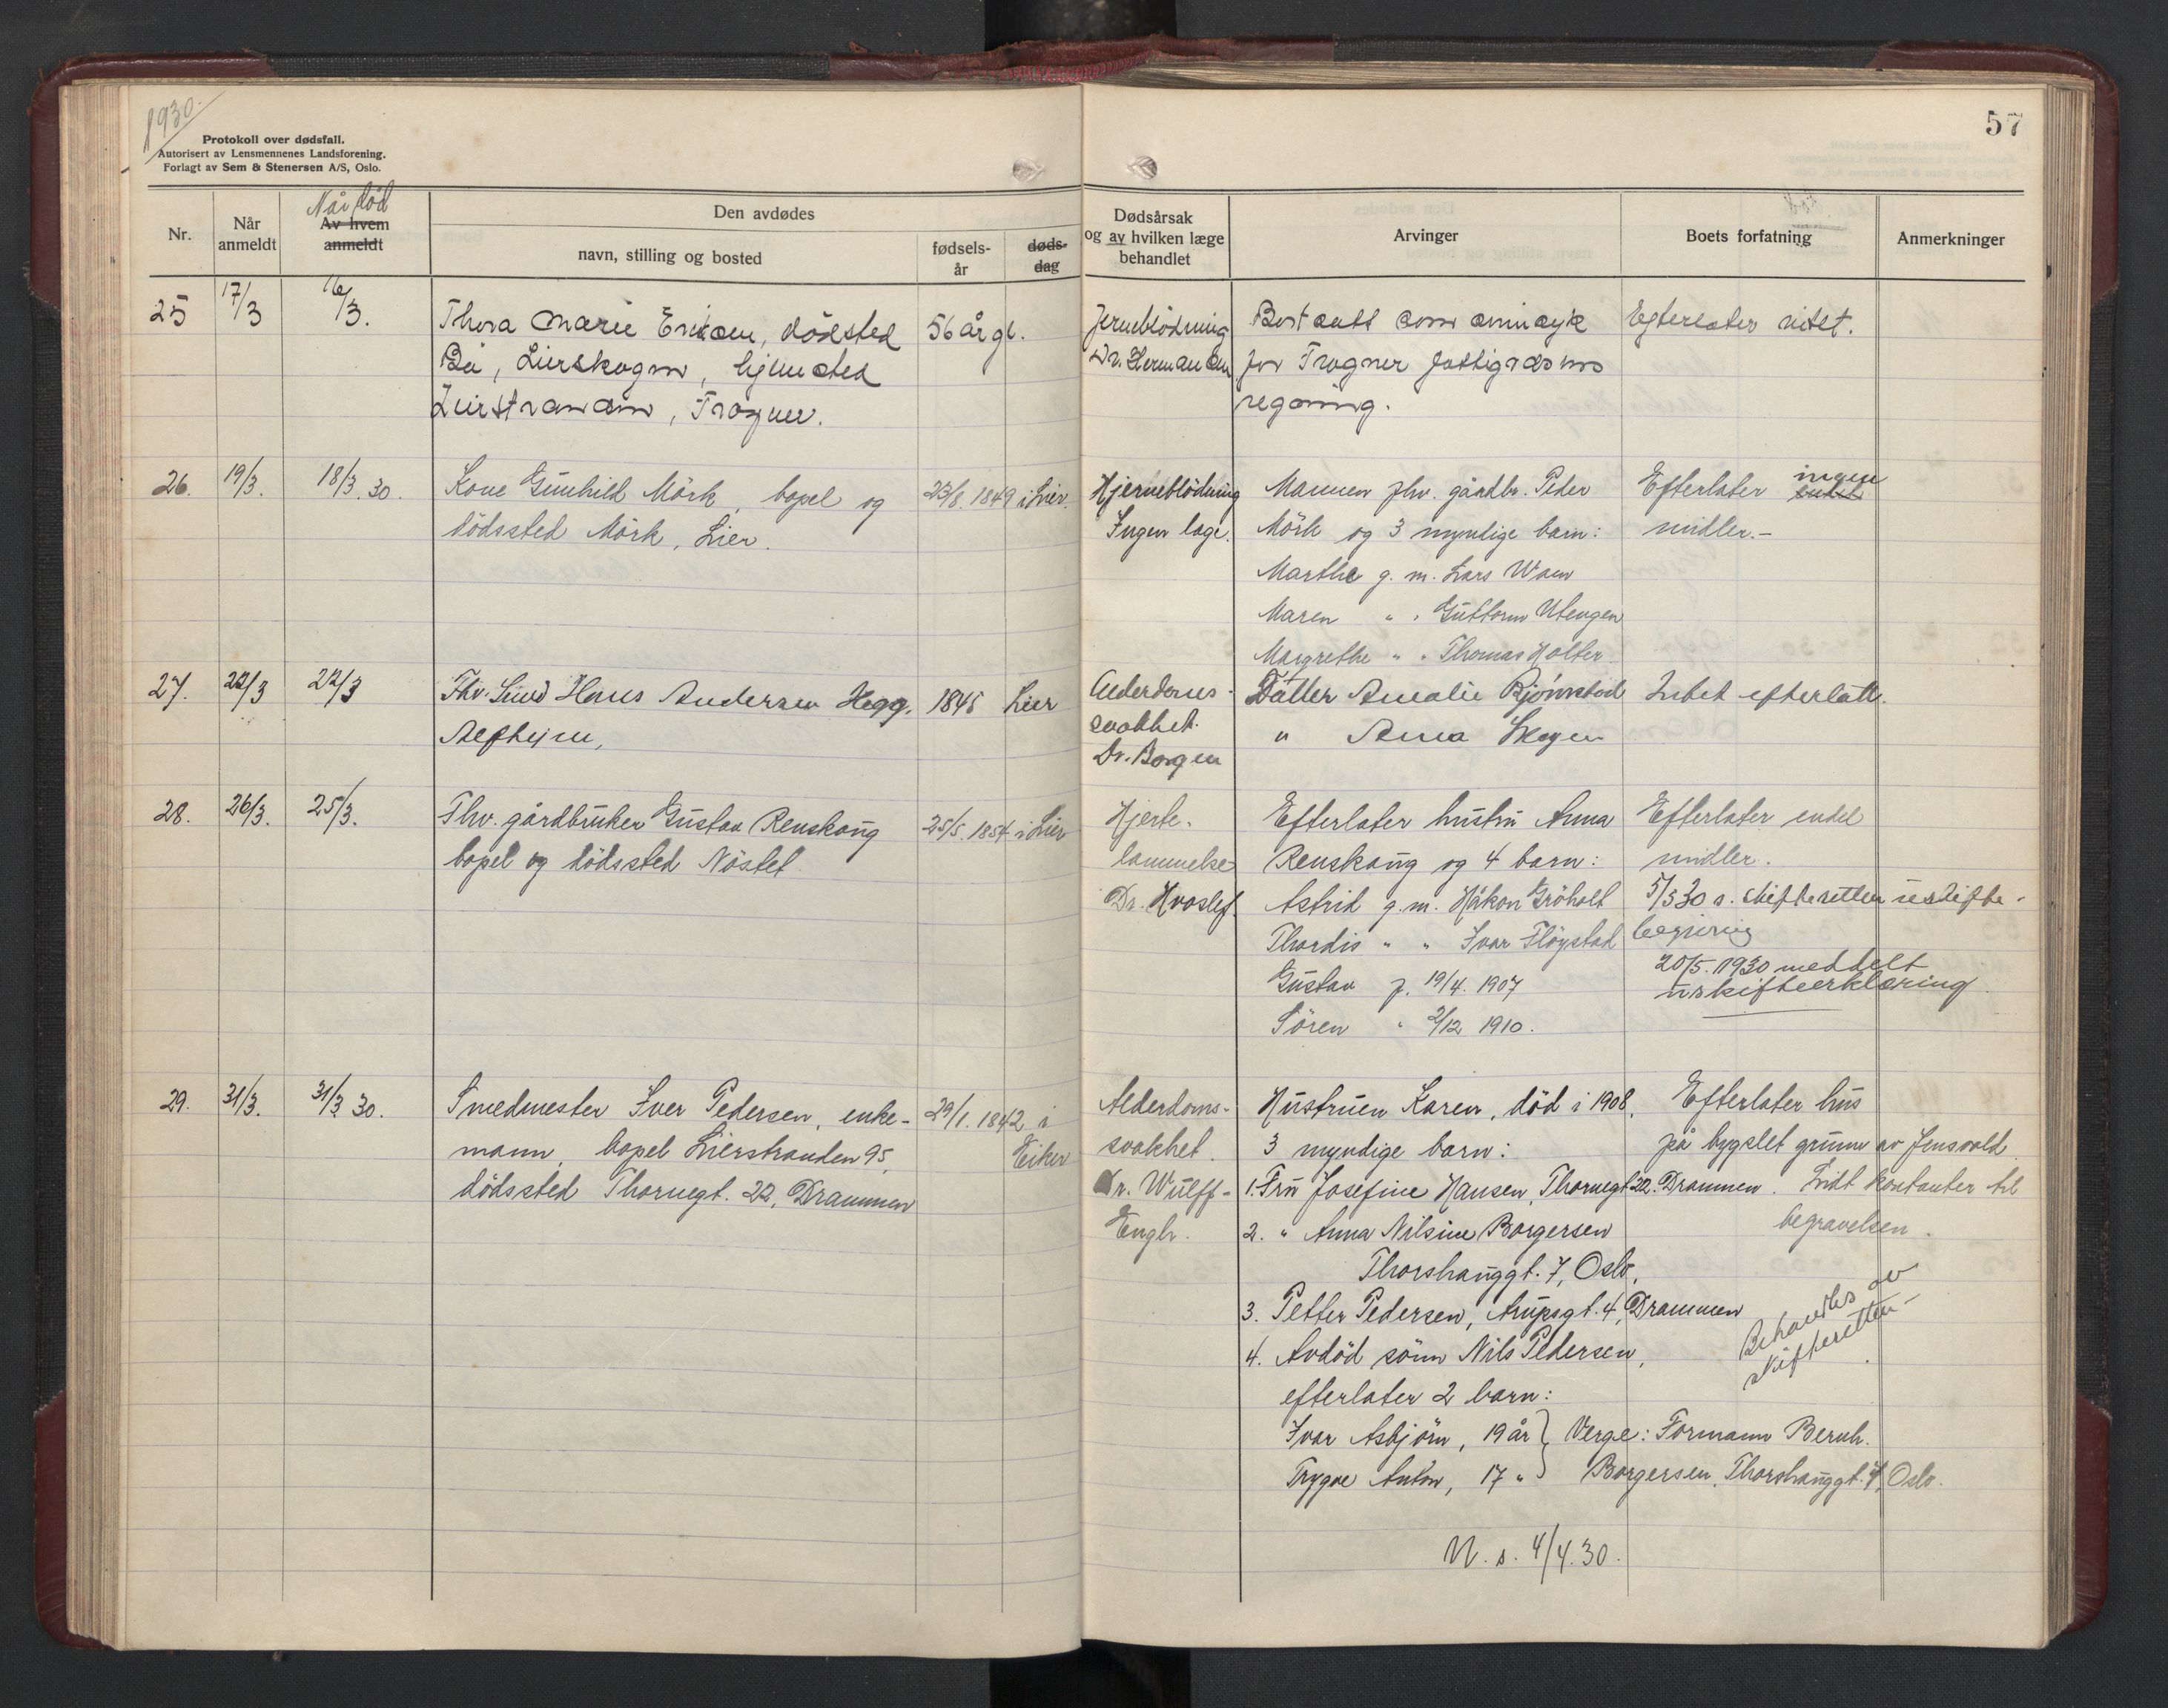 1930.
Protokoll over dødsfall.
Autorisert av Lensmennenes Landsforening.
Forlagt av Sem & Stenersen A/S, Oslo.
57
Nr.
Når anmeldt
Når død
Av hvem anmeldt
Den avdødes
navn, stilling og bosted
fødsels-år
døds-dag
Dødsårsak og av hvilken læge behandlet
Arvinger
Boets forfatning
Anmerkninger
25 17/3 16/3. Thora Marie Eriksen, dödsted 56 år gl.
Bö, Lierskogen, hjemsted
Lierstranden, Frogner.
Jerneblödning
Dr. Hermansen
for Frogner fattigvæsens
regning.
Efterlater intet.
26. 19/3. 18/3.30. Kone Gunhild Mörk, bopel og 23/8.1849 i Lier.
dödssted Mörk, Lier.
Hjerneblödning
Ingen læge.
Mannen fhv. gårdbr. Peder
Mörk og 3 myndige barn:
Marthe g. m. Lars Waen
Maren " " Guttorm Utengen
Margrethe " " Thomas Holter.
Efterlater ingen
midler.-
27. 22/3 22/3 Fhv. Hans Andersen Hegg, 1845 Lier
Alderdoms-
svakhet.
Dr. Borgen
Datter Amalie Björnstad
" Anna Skogen
Intet efterlatt.
28. 26/3. 25/3. Fhv. gårdbruker Gustav Renskaug 25/5.1854 i Lier
bopel og dödssted Nöstet
Hjerte-
lammelse
Dr. Hvoslef.
Efterlater hustru Anna
Renskaug og 4 barn:
Astrid g.m. Håkon Gröholt
Thordis " " Ivar Flögstad
Gustav f. 19/4. 1907
Sören " 2/12 1910.
Efterlater endel
midler.
5/5 30 s. skifteretten uskifte-
begjering
20/5. 1930 meddelt
uskifteerklæring.
29. 31/3. 31/3 30. Smedmester Iver Pedersen, enke- 29/1. 1842 i
mann, bopel Lierstranden 95, Eiker
dödssted Thornegt. 22, Drammen
Alderdoms-
svakhet.
Dr. Wulff-
Engh.
Hustruen Karen, död i 1908.
3 myndige barn:
1. Fru Josefine Hansen, Thornegt 22. Drammen.
2. " Anna Nilsine Borgersen
Thorshauggt. 7, Oslo,
3. Petter Pedersen, Arupsgt. 4, Drammen
4. Avdöd sönn Nils Pedersen,
efterlater 2 barn:
Ivar Asbjörn, 19 år } Verge: Formann Bernh.
Trygve Anton, 17 " } Borgersen, Thorshauggt. 7, Oslo.
Efterlater hus
på bygslet grunn av Jensvold.
Litt kontanter til
begravelsen.
Behandles av
skifteretten-
N. s. 4/4.30.